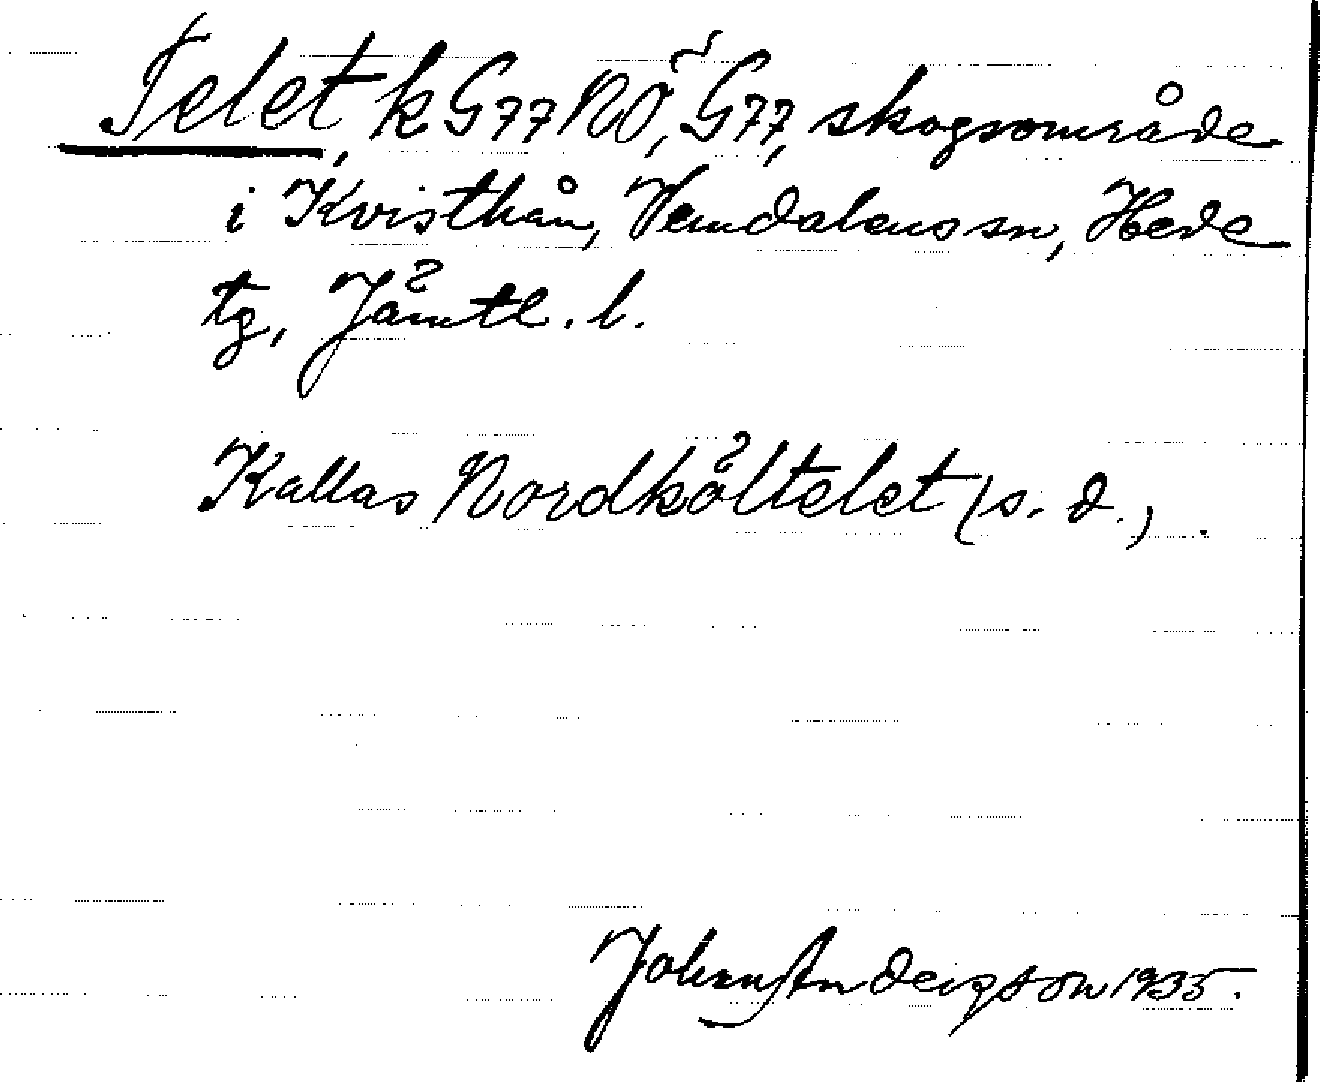 Telet, k G77NÖ, G77, skogsområde
i Kvisthån, Vemdalens sn, Hede
tg, Jämtl. l.
Kallas Nordköltelet (s. d.).
Johan Andersson 1935.